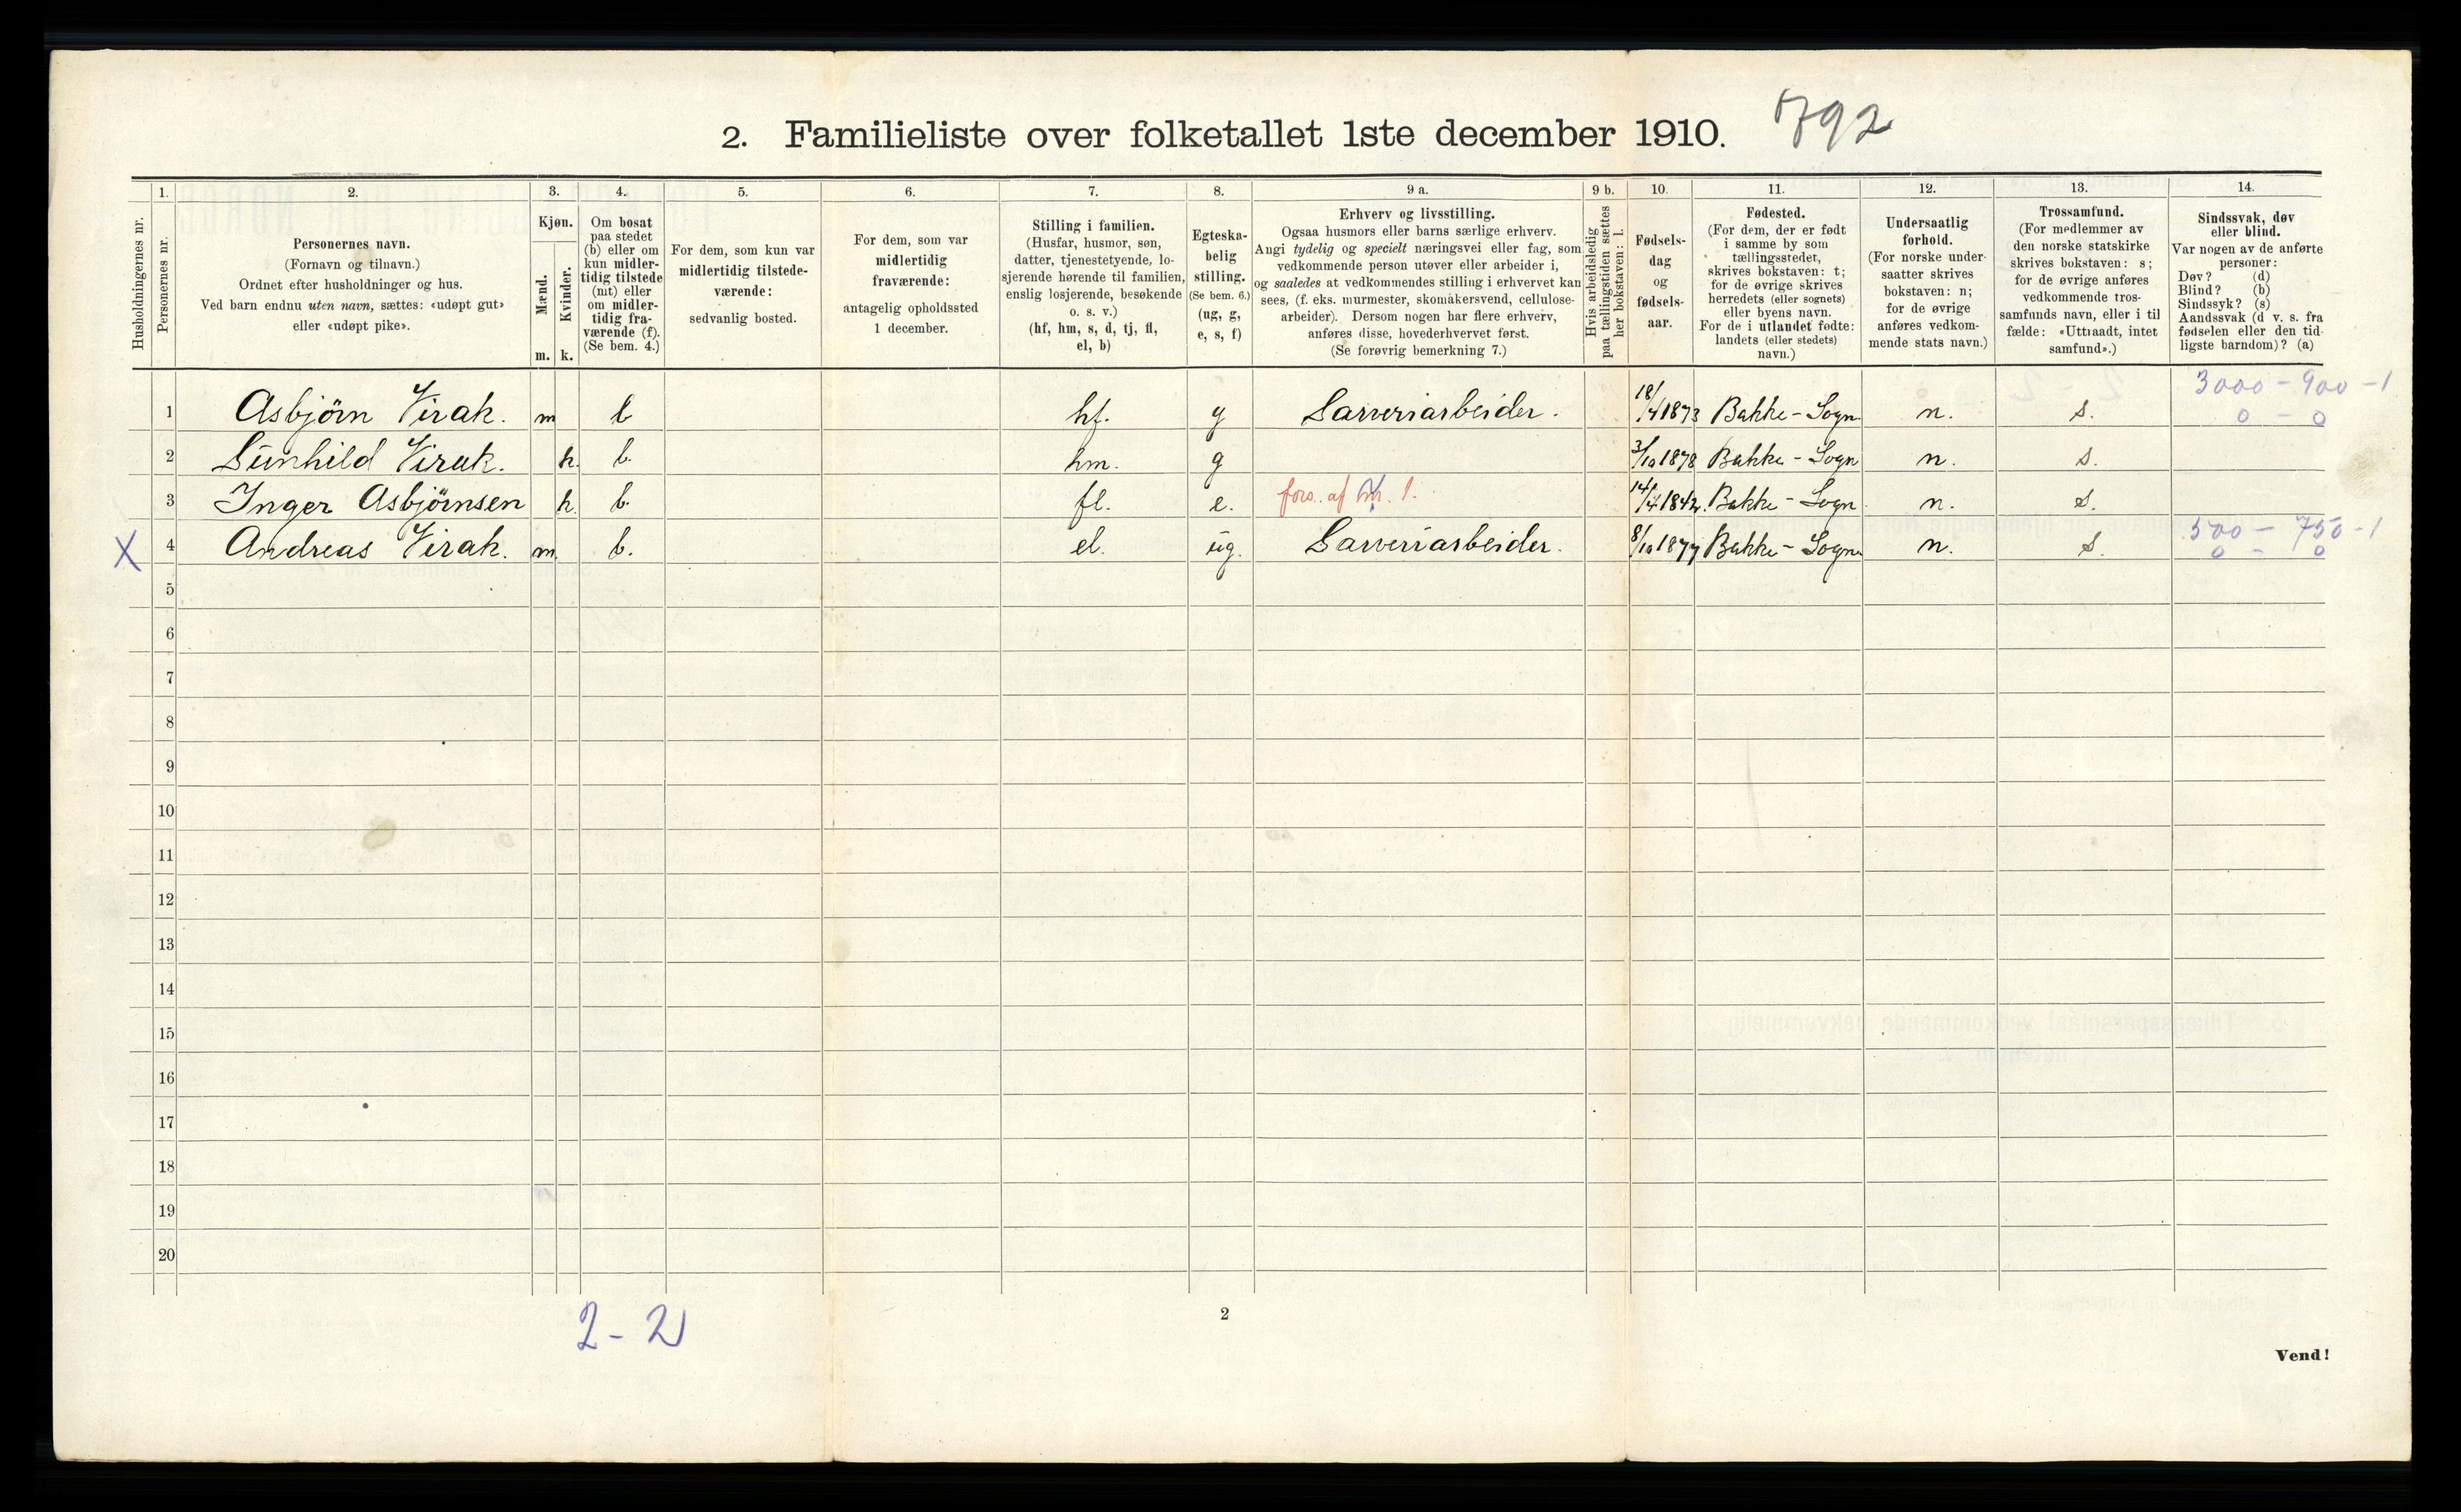 792
2. Familieliste over folketallet 1ste december 1910.
1. 2. 3. 4. 5. 6. 7. 8. 9 a. 9 b. 10. 11. 12. 13. 14.
Husholdningernes nr.
Personernes nr.
Personernes navn.
(Fornavn og tilnavn.)
Ordnet efter husholdninger og hus.
Ved barn endnu uten navn, sættes: «udøpt gut»
eller «udøpt pike».
Kjøn.
Mænd.
Kvinder.
m. k.
Om bosat
paa stedet
(b) eller om
kun midler-
tidig tilstede
(mt) eller
om midler-
tidig fra-
værende (f).
(Se bem. 4.)
For dem, som kun var
midlertidig tilstede-
værende:
sedvanlig bosted.
For dem, som var
midlertidig
fraværende:
antagelig opholdssted
1 december.
Stilling i familien.
(Husfar, husmor, søn,
datter, tjenestetyende, lo-
sjerende hørende til familien,
enslig losjerende, besøkende
o. s. v.)
(hf, hm, s, d, tj, fl,
el, b)
Egteska-
belig
stilling.
(Se bem. 6.)
(ug, g,
e, s, f)
Erhverv og livsstilling.
Ogsaa husmors eller barns særlige erhverv.
Angi tydelig og specielt næringsvei eller fag, som
vedkommende person utøver eller arbeider i,
og saaledes at vedkommendes stilling i erhvervet kan
sees, (f. eks. murmester, skomakersvend, cellulose-
arbeider). Dersom nogen har flere erhverv,
anføres disse, hovederhvervet først.
(Se forøvrig bemerkning 7.)
Hvis arbeidsledig
paa tællingstiden sættes
her bokstaven: l.
Fødsels-
dag
og
fødsels-
aar.
Fødested.
(For dem, der er født
i samme by som
tællingsstedet,
skrives bokstaven: t;
for de øvrige skrives
herredets (eller sognets)
eller byens navn.
For de i utlandet fødte:
landets (eller stedets)
navn.)
Undersaatlig
forhold.
(For norske under-
saatter skrives
bokstaven: n;
for de øvrige
anføres vedkom-
mende stats navn.)
Trossamfund.
(For medlemmer av
den norske statskirke
skrives bokstaven: s;
for de øvrige anføres
vedkommende tros-
samfunds navn, eller i til
fælde: «Uttraadt, intet
samfund».)
Sindssvak, døv
eller blind.
Var nogen av de anførte
personer:
Døv? (d)
Blind? (b)
Sindssyk? (s)
Aandssvak (d v. s. fra
fødselen eller den tid-
ligste barndom)? (a)
3000 - 900 - 1
1 Asbjörn Virak. m b hf. g Garveriarbeider. 18/4 1873 Bakke-Sogn n. s. 0 - 0
2 Gunhild Virak. k. b. hm. g 3/10 1878 Bakke-Sogn n. s.
3 Inger Asbjörnsen k. b. fl. e. fors. af nr. 1. 14/4 1842. Bakke-Sogn n. s.
500 - 750 - 1
X 4 Andreas Virak. m. b. el. ug. Garveriarbeider. 8/10 1877 Bakke-Sogn n. s. 0 - 0
5
6
7
8
9
10
11
12
13
14
15
16
17
18
19
20
2 - 2
2
Vend!